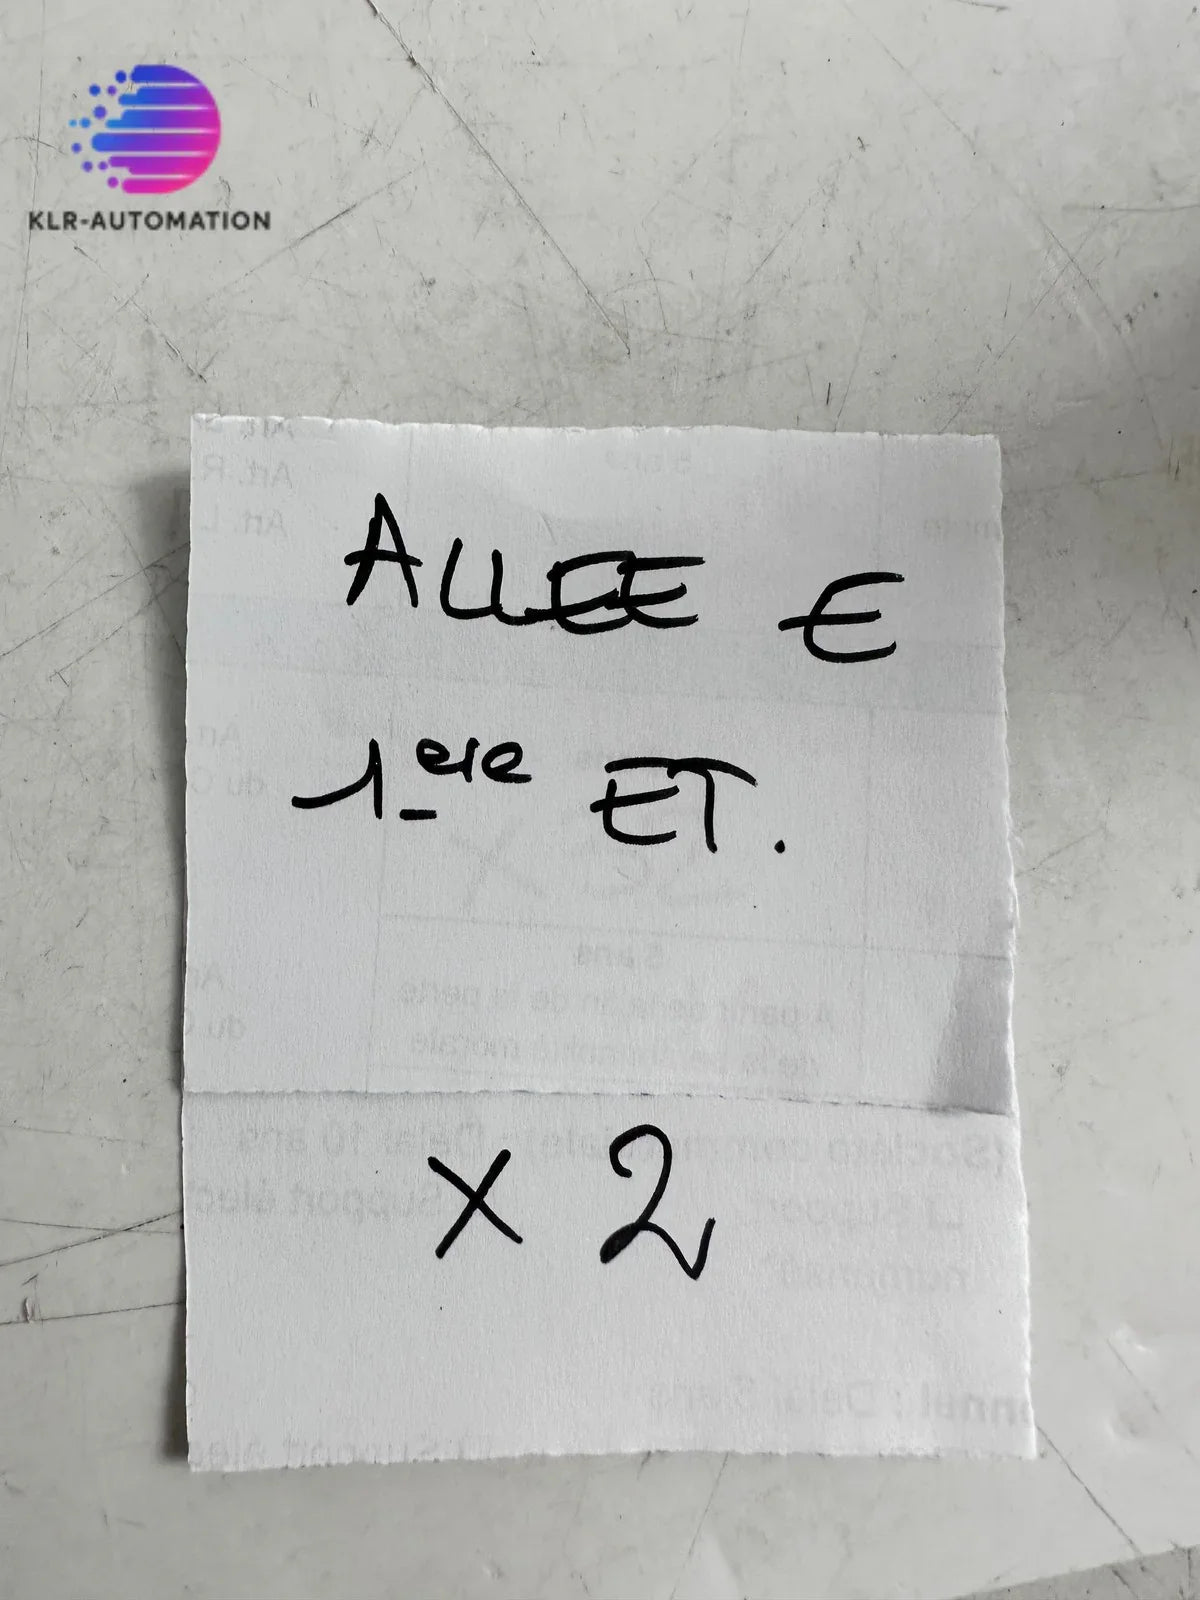 KLR-AUTOMATION
ALLEE E
1ere ET.
x 2